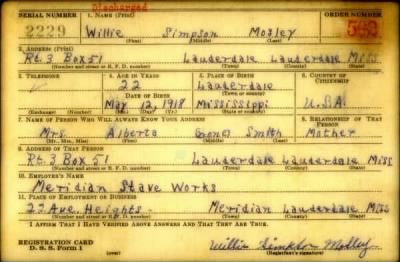 Discharged
SERIAL NUMBER 1. NAME (Print) ORDER NUMBER
2229 Willie Simpson Mosley
(First) (Middle) (Last)
2. ADDRESS (Print)
Rt. 3 Box 51 Lauderdale Lauderdale Miss
(Number and street or R. F. D. number) (Town) (County) (State)
3. TELEPHONE 4. AGE IN YEARS 5. PLACE OF BIRTH 6. COUNTRY OF CITIZENSHIP
22 Lauderdale
DATE OF BIRTH (Town or county)
May 12, 1918 Mississippi U.S.A.
(Exchange) (Number) (Mo.) (Day) (Yr.) (State or country)
7. NAME OF PERSON WHO WILL ALWAYS KNOW YOUR ADDRESS 8. RELATIONSHIP OF THAT PERSON
Mrs. Alberta Jones Smith Mother
(Mr., Mrs., Miss) (First) (Middle) (Last)
9. ADDRESS OF THAT PERSON
Rt. 3 Box 51 Lauderdale Lauderdale Miss
(Number and street or R. F. D. number) (Town) (County) (State)
10. EMPLOYER'S NAME
Meridian Stave Works
11. PLACE OF EMPLOYMENT OR BUSINESS
22 Ave. Heights - Meridian Lauderdale Miss
(Number and street or R. F. D. number) (Town) (County) (State)
I AFFIRM THAT I HAVE VERIFIED ABOVE ANSWERS AND THAT THEY ARE TRUE.
REGISTRATION CARD
D. S. S. Form 1 (over) Willie Simpson Mosley
(Registrant's signature)